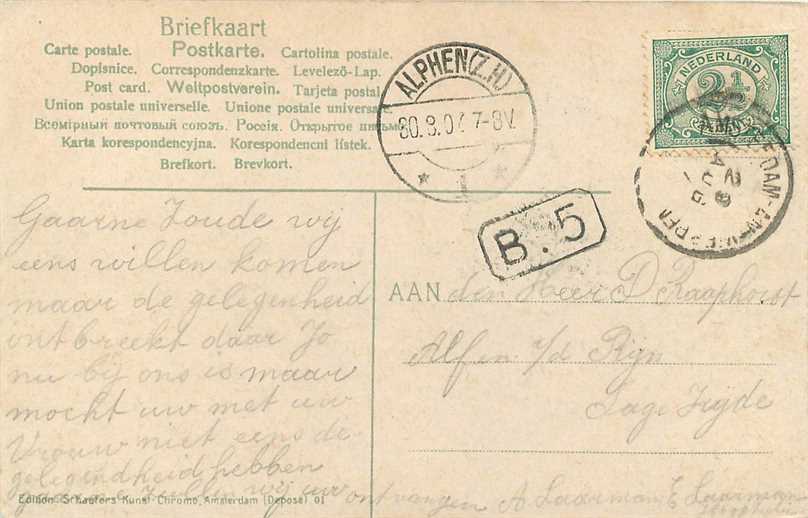 Briefkaart
Carte postale. Postkarte. Cartolina postale.
Dopisnice. Correspondenzkarte. Levelező-Lap.
Post card. Weltpostverein. Tarjeta postal.
Union postale universelle. Unione postale universa
Всемірный почтовый союзъ. Россія. Открытое письмо
Karta korespondencyjna. Korespondencní listek.
Brefkort. Brevkort.
ALPHEN(Z.H)
30.8.07 7-8V.
1
NEDERLAND
2½
CENT
AMSTERDAM-ANTWERPEN
AUG
B.5
Gaarne Zoude wij
eens willen komen
maar de gelegenheid
ontbreekt daar Jo
nu bij ons is maar
mocht uw met uw
Vrouw niet eens de
gelegendheid hebben
wij uw ontvangen A Laarman E Laarman
AAN den Heer D Raaphorst
Alfen a/d Rijn
Lage Zijde
Edition Schaefers Kunst Chromo, Amsterdam (Deposé) 01